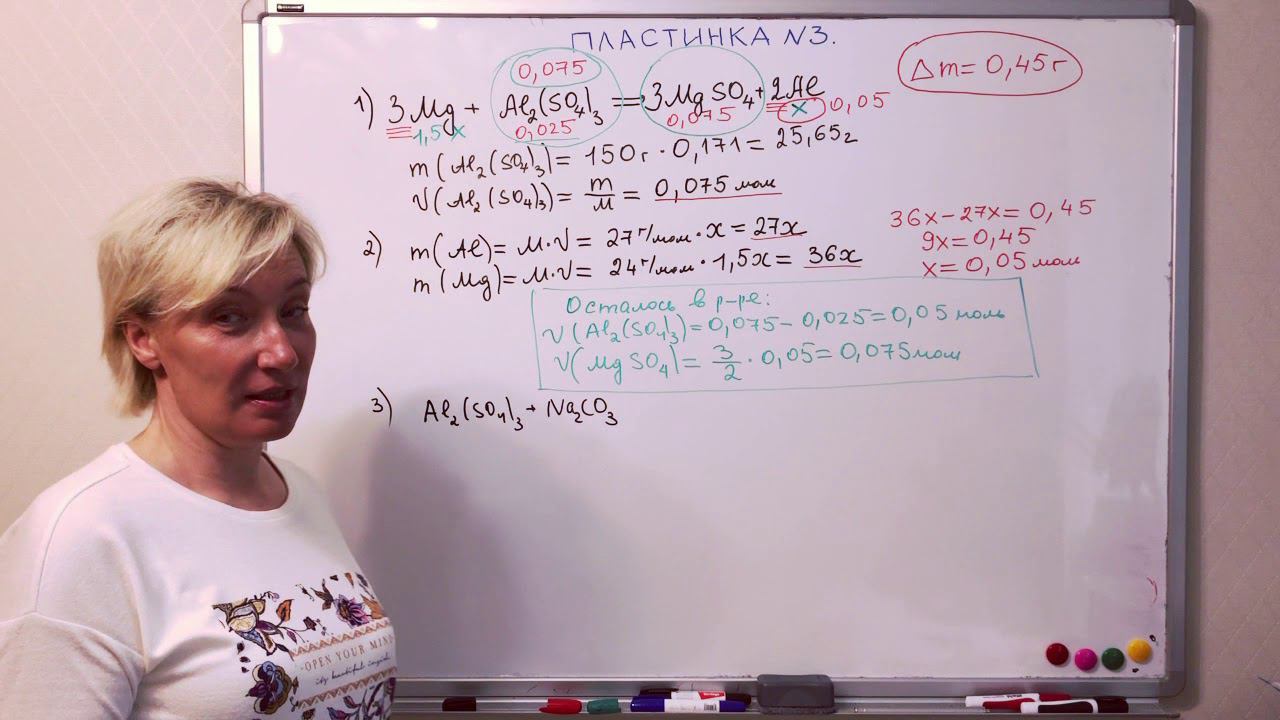 ПЛАСТИНКА N3.
Δm = 0,45 г
0,075
1) 3Mg + Al₂(SO₄)₃ = 3MgSO₄ + 2Al
1,5x 0,025 0,075 x 0,05
m(Al₂(SO₄)₃) = 150г · 0,171 = 25,65г
ν(Al₂(SO₄)₃) = m/M = 0,075 мол
2) m(Al) = M·ν = 27 г/мол · x = 27x
m(Mg) = M·ν = 24 г/мол · 1,5x = 36x
36x − 27x = 0,45
9x = 0,45
x = 0,05 мол
Осталось в р-ре:
ν(Al₂(SO₄)₃) = 0,075 − 0,025 = 0,05 моль
ν(MgSO₄) = 3/2 · 0,05 = 0,075 мол
3) Al₂(SO₄)₃ + Na₂CO₃
OPEN YOUR MIND